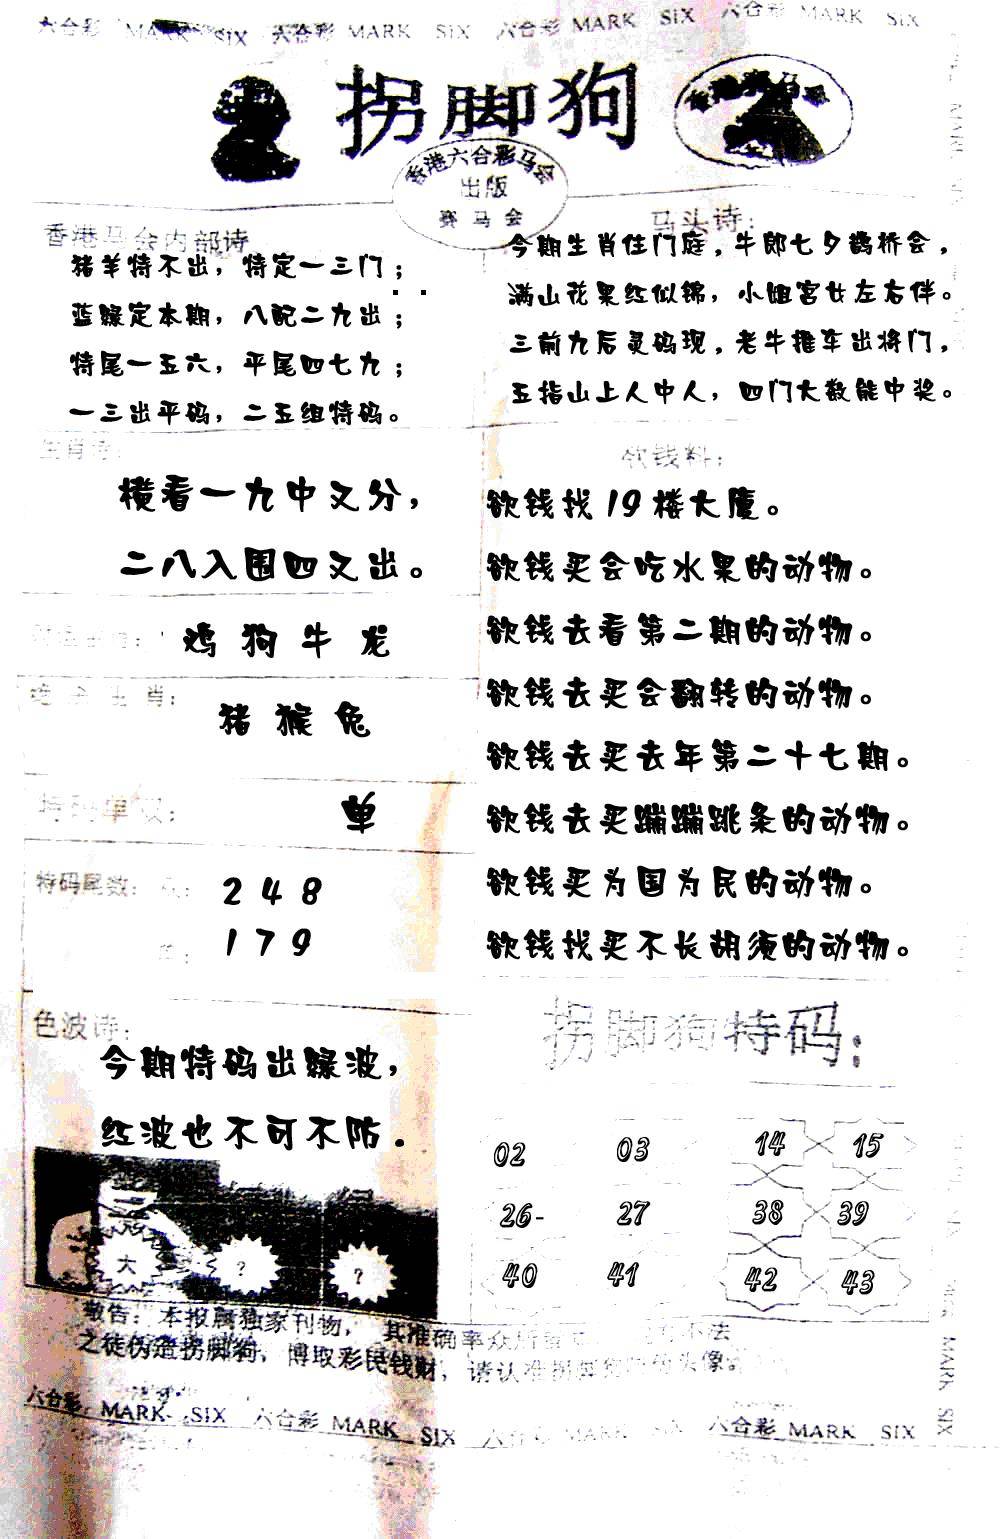 六合彩 MARK SIX 六合彩 MARK SIX 六合彩 MARK SIX 六合彩 MARK SIX
拐脚狗
香港六合彩马会
出版
赛马会
香港马会内部诗
猪羊特不出，特定一三门；
蓝绿定本期，八配二九出；
特尾一五六，平尾四七九；
一三出平码，二五组特码。
马头诗：
今期生肖住门庭，牛郎七夕鹊桥会，
满山花果红似锦，小姐宫女左右伴。
三前九后灵码现，老牛推车出将门，
五指山上人中人，四门大数能中奖。
生肖诗：
横看一九中又分，
二八入围四又出。
鸡 狗 牛 龙
生肖：
猪 猴 兔
特码单双：
单
特码尾数：
2 4 8
1 7 9
欲钱料：
欲钱找19楼大厦。
欲钱买会吃水果的动物。
欲钱去看第二期的动物。
欲钱去买会翻转的动物。
欲钱去买去年第二十七期。
欲钱去买蹦蹦跳条的动物。
欲钱买为国为民的动物。
欲钱找买不长胡须的动物。
色波诗：
今期特码出绿波，
红波也不可不防．
大 ？ ？
拐脚狗特码：
02 03 14 15
26- 27 38 39
40 41 42 43
敬告：本报属独家刊物，其准确率众所 不法
之徒伪造拐脚狗，博取彩民钱财，请认准拐脚狗 头像。
六合彩 MARK SIX 六合彩 MARK SIX 六合彩 MARK SIX 六合彩 MARK SIX
MARK SIX